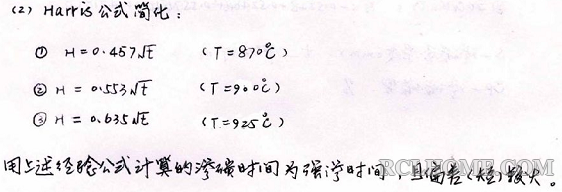 (2) Harris公式简化：
① H=0.457√t (T=870℃)
② H=0.553√t (T=900℃)
③ H=0.635√t (T=925℃)
用上述经验公式计算的渗碳时间为强渗时间，且偏差(短)较大。
RCLHOME.COM